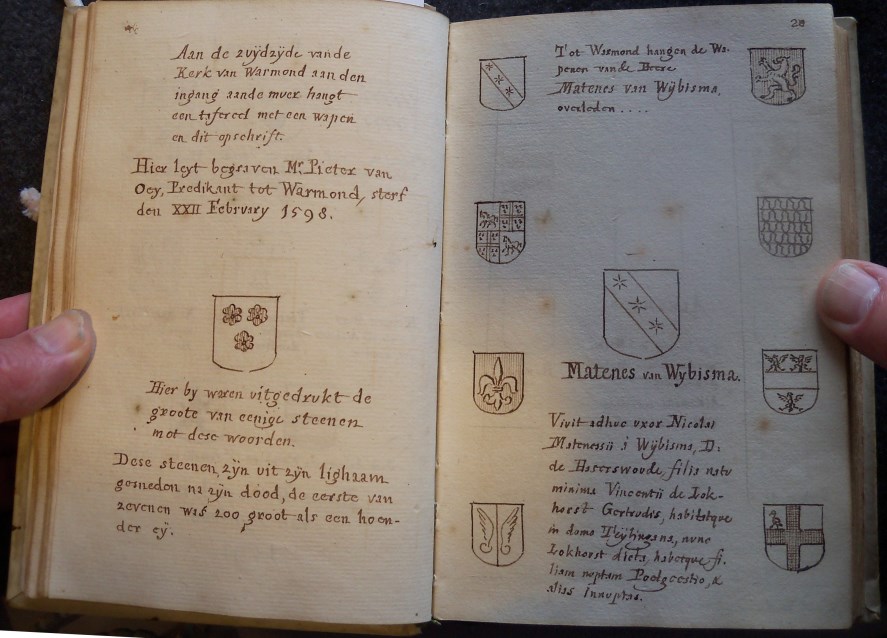 Aan de zuÿdzÿde vande
Kerk van Warmond aan den
ingang aande muer hangt
een tafereel met een wapen
en dit opschrift.
Hier leyt begraven Mr. Pieter van
Oey, Predikant tot Warmond, sterf
den XXII February 1598.
Hier by waren uitgedrukt de
groote van eenige steenen
met dese woorden.
Dese steenen zÿn uit zÿn lighaam
gesneden na zÿn dood, de eerste van
zevenen was zoo groot als een hoen-
der eÿ.
20
Tot Warmond hangen de Wa-
penen vande Heere
Matenes van Wÿbisma,
overleden ....
Matenes van Wybisma.
Vivit adhuc uxor Nicolai
Matenessii à Wÿbisma, D:
de Haserswoude, filia natu
minima Vincentii de Lok-
horst Gertrudis, habitatque
in domo Teÿlingana, nunc
Lokhorst dicta, habetque fi-
liam nuptam Poelgeestio, &
alias innuptas.